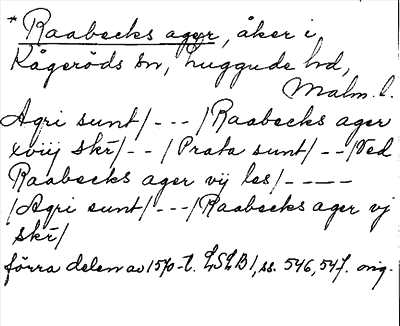 *Raabecks ager, åker i
Kågeröds sn, Luggude hd,
Malm. l.
Agri sunt/---/Raabecks ager
xviij skr̄/--/Prata sunt/--/Ved
Raabecks ager vij les/----
/Agri sunt/---/Raabecks ager vj
skr̄/
förra delen av 1570-t. LSLB1, ss. 546, 547. orig.